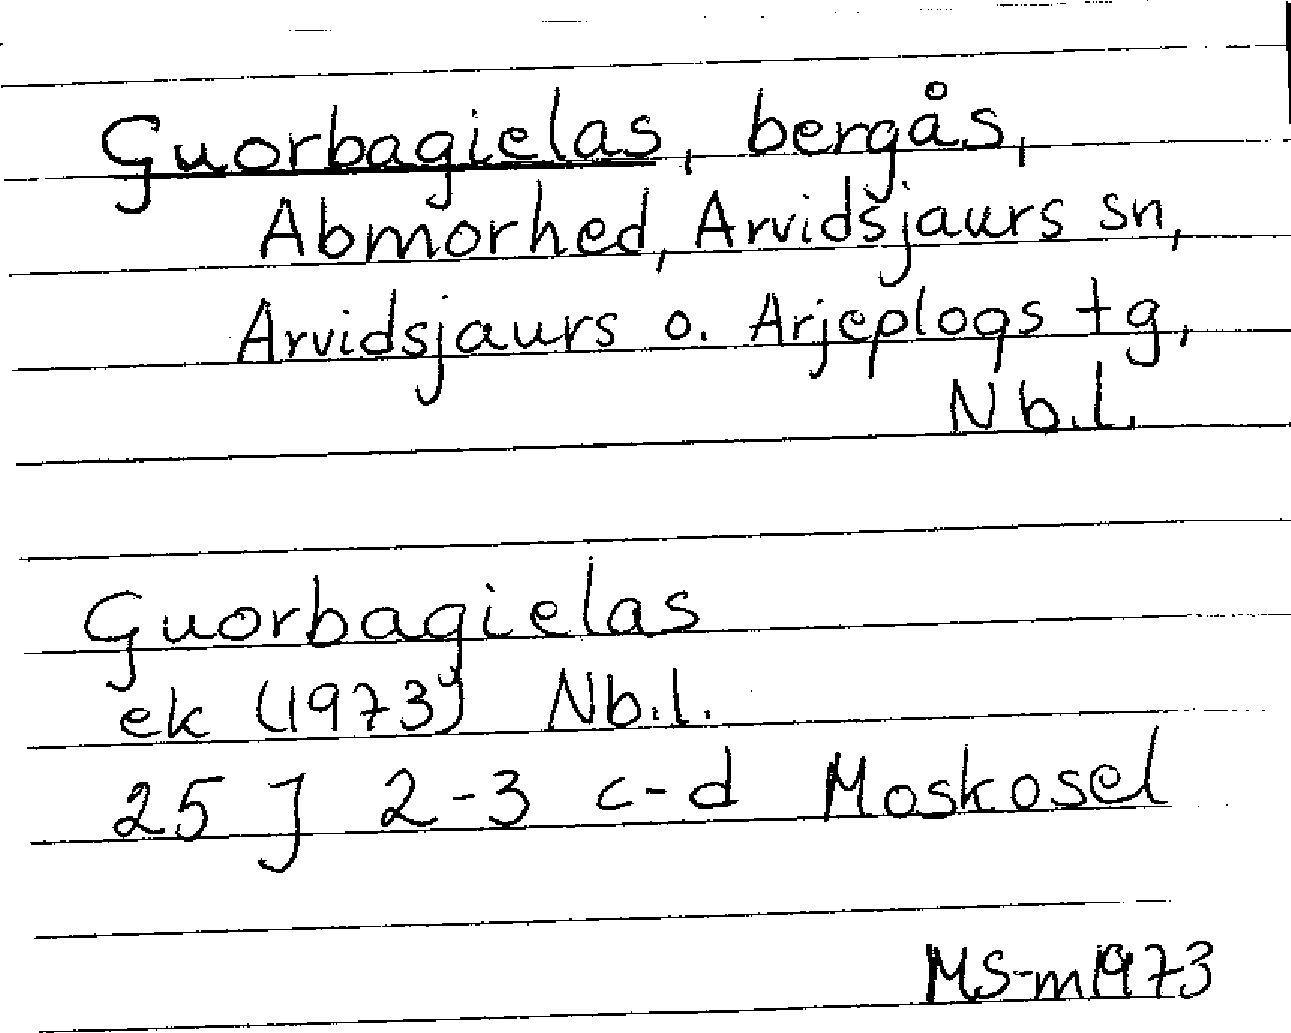 Guorbagielas, bergås,
Abmorhed, Arvidsjaurs sn,
Arvidsjaurs o. Arjeplogs tg,
Nb.l.
Guorbagielas
ek (1973) Nb.l.
25 J 2-3 c-d Moskosel
MS-m1973